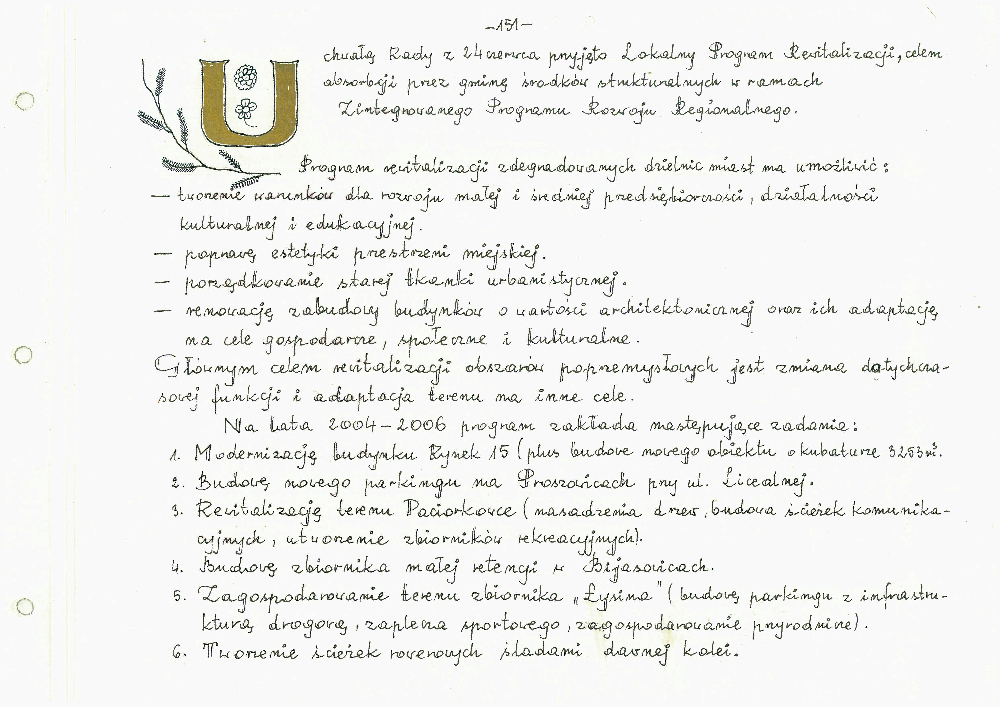 -151-
Uchwałą Rady z 24 czerwca przyjęto Lokalny Program Rewitalizacji, celem
absorbcji przez gminę środków strukturalnych w ramach
Zintegrowanego Programu Rozwoju Regionalnego.
Program rewitalizacji zdegradowanych dzielnic miast ma umożliwić:
— tworzenie warunków dla rozwoju małej i średniej przedsiębiorczości, działalności
kulturalnej i edukacyjnej.
— poprawę estetyki przestrzeni miejskiej.
— porządkowanie starej tkanki urbanistycznej.
— renowację zabudowy budynków o wartości architektonicznej oraz ich adaptację
na cele gospodarcze, społeczne i kulturalne.
Głównym celem rewitalizacji obszarów poprzemysłowych jest zmiana dotychcza-
sowej funkcji i adaptacja terenu na inne cele.
Na lata 2004-2006 program zakłada następujące zadania:
1. Modernizację budynku Rynek 15 (plus budowę nowego obiektu o kubaturze 3253 m³.
2. Budowę nowego parkingu na Proszowicach przy ul. Licealnej.
3. Rewitalizację terenu Paciorkowce (nasadzenia drzew, budowa ścieżek komunika-
cyjnych, utworzenie zbiorników rekreacyjnych).
4. Budowę zbiornika małej retencji w Bijasowicach.
5. Zagospodarowanie terenu zbiornika „Łysina" (budowę parkingu z infrastru-
kturą drogową, zaplecza sportowego, zagospodarowanie przyrodnicze).
6. Tworzenie ścieżek rowerowych śladami dawnej kolei.